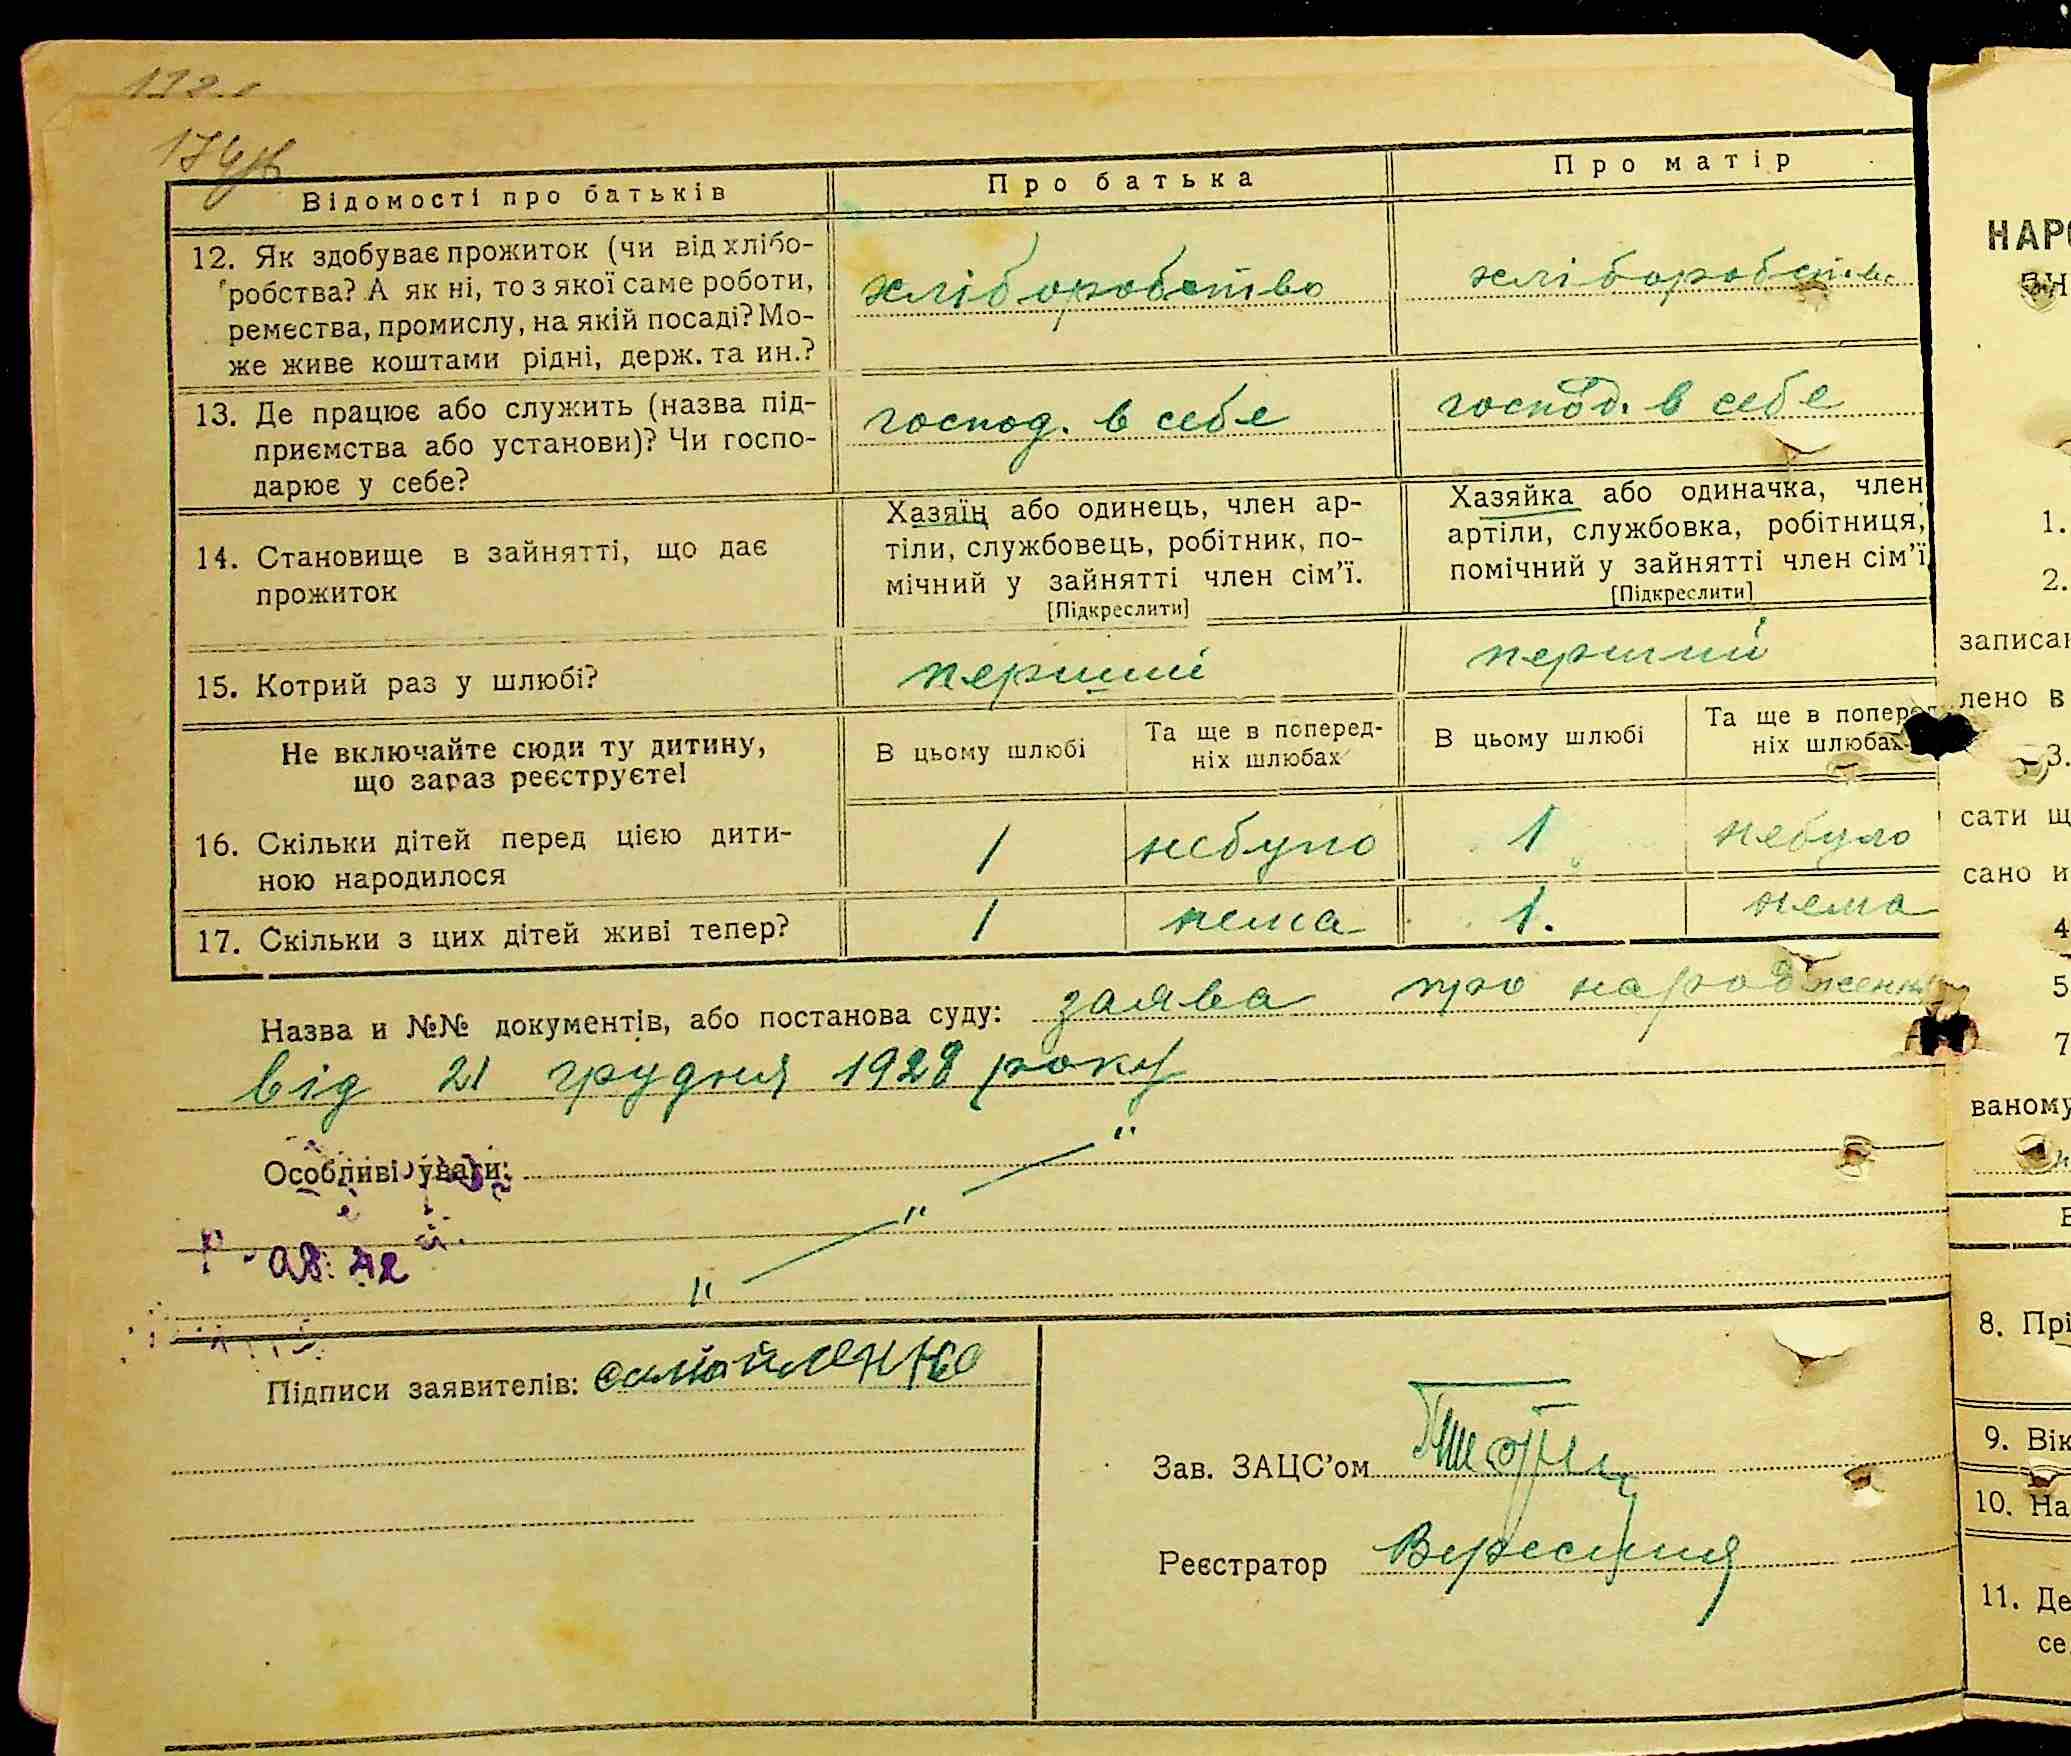 174
Відомості про батьків
Про батька
Про матір
12. Як здобуває прожиток (чи від хлібо-
робства? А як ні, то з якої саме роботи,
ремества, промислу, на якій посаді? Мо-
же живе коштами рідні, держ. та ин.?
хліборобство
хліборобств.
13. Де працює або служить (назва під-
приємства або установи)? Чи госпо-
дарює у себе?
господ. в себе
господ. в себе
14. Становище в зайнятті, що дає
прожиток
Хазяїн або одинець, член ар-
тіли, службовець, робітник, по-
мічний у зайнятті член сім'ї.
[Підкреслити]
Хазяйка або одиначка, член
артіли, службовка, робітниця,
помічний у зайнятті член сім'ї
[Підкреслити]
15. Котрий раз у шлюбі?
перший
перший
Не включайте сюди ту дитину,
що зараз реєструєте!
В цьому шлюбі
Та ще в поперед-
ніх шлюбах
В цьому шлюбі
Та ще в поперед-
ніх шлюбах
16. Скільки дітей перед цією дити-
ною народилося
1
небуло
1
небуло
17. Скільки з цих дітей живі тепер?
1
нема
1.
нема
Назва и №№ документів, або постанова суду: заява про народження
від 21 грудня 1928 року
Особливі уваги:
Підписи заявителів: самойленко
Зав. ЗАЦС'ом
Реєстратор
НАРО
1.
2.
записан
лено в
3.
сати щ
сано и
4
5
7
ваному
8. Прі
9. Вік
10. На
11. Де
се